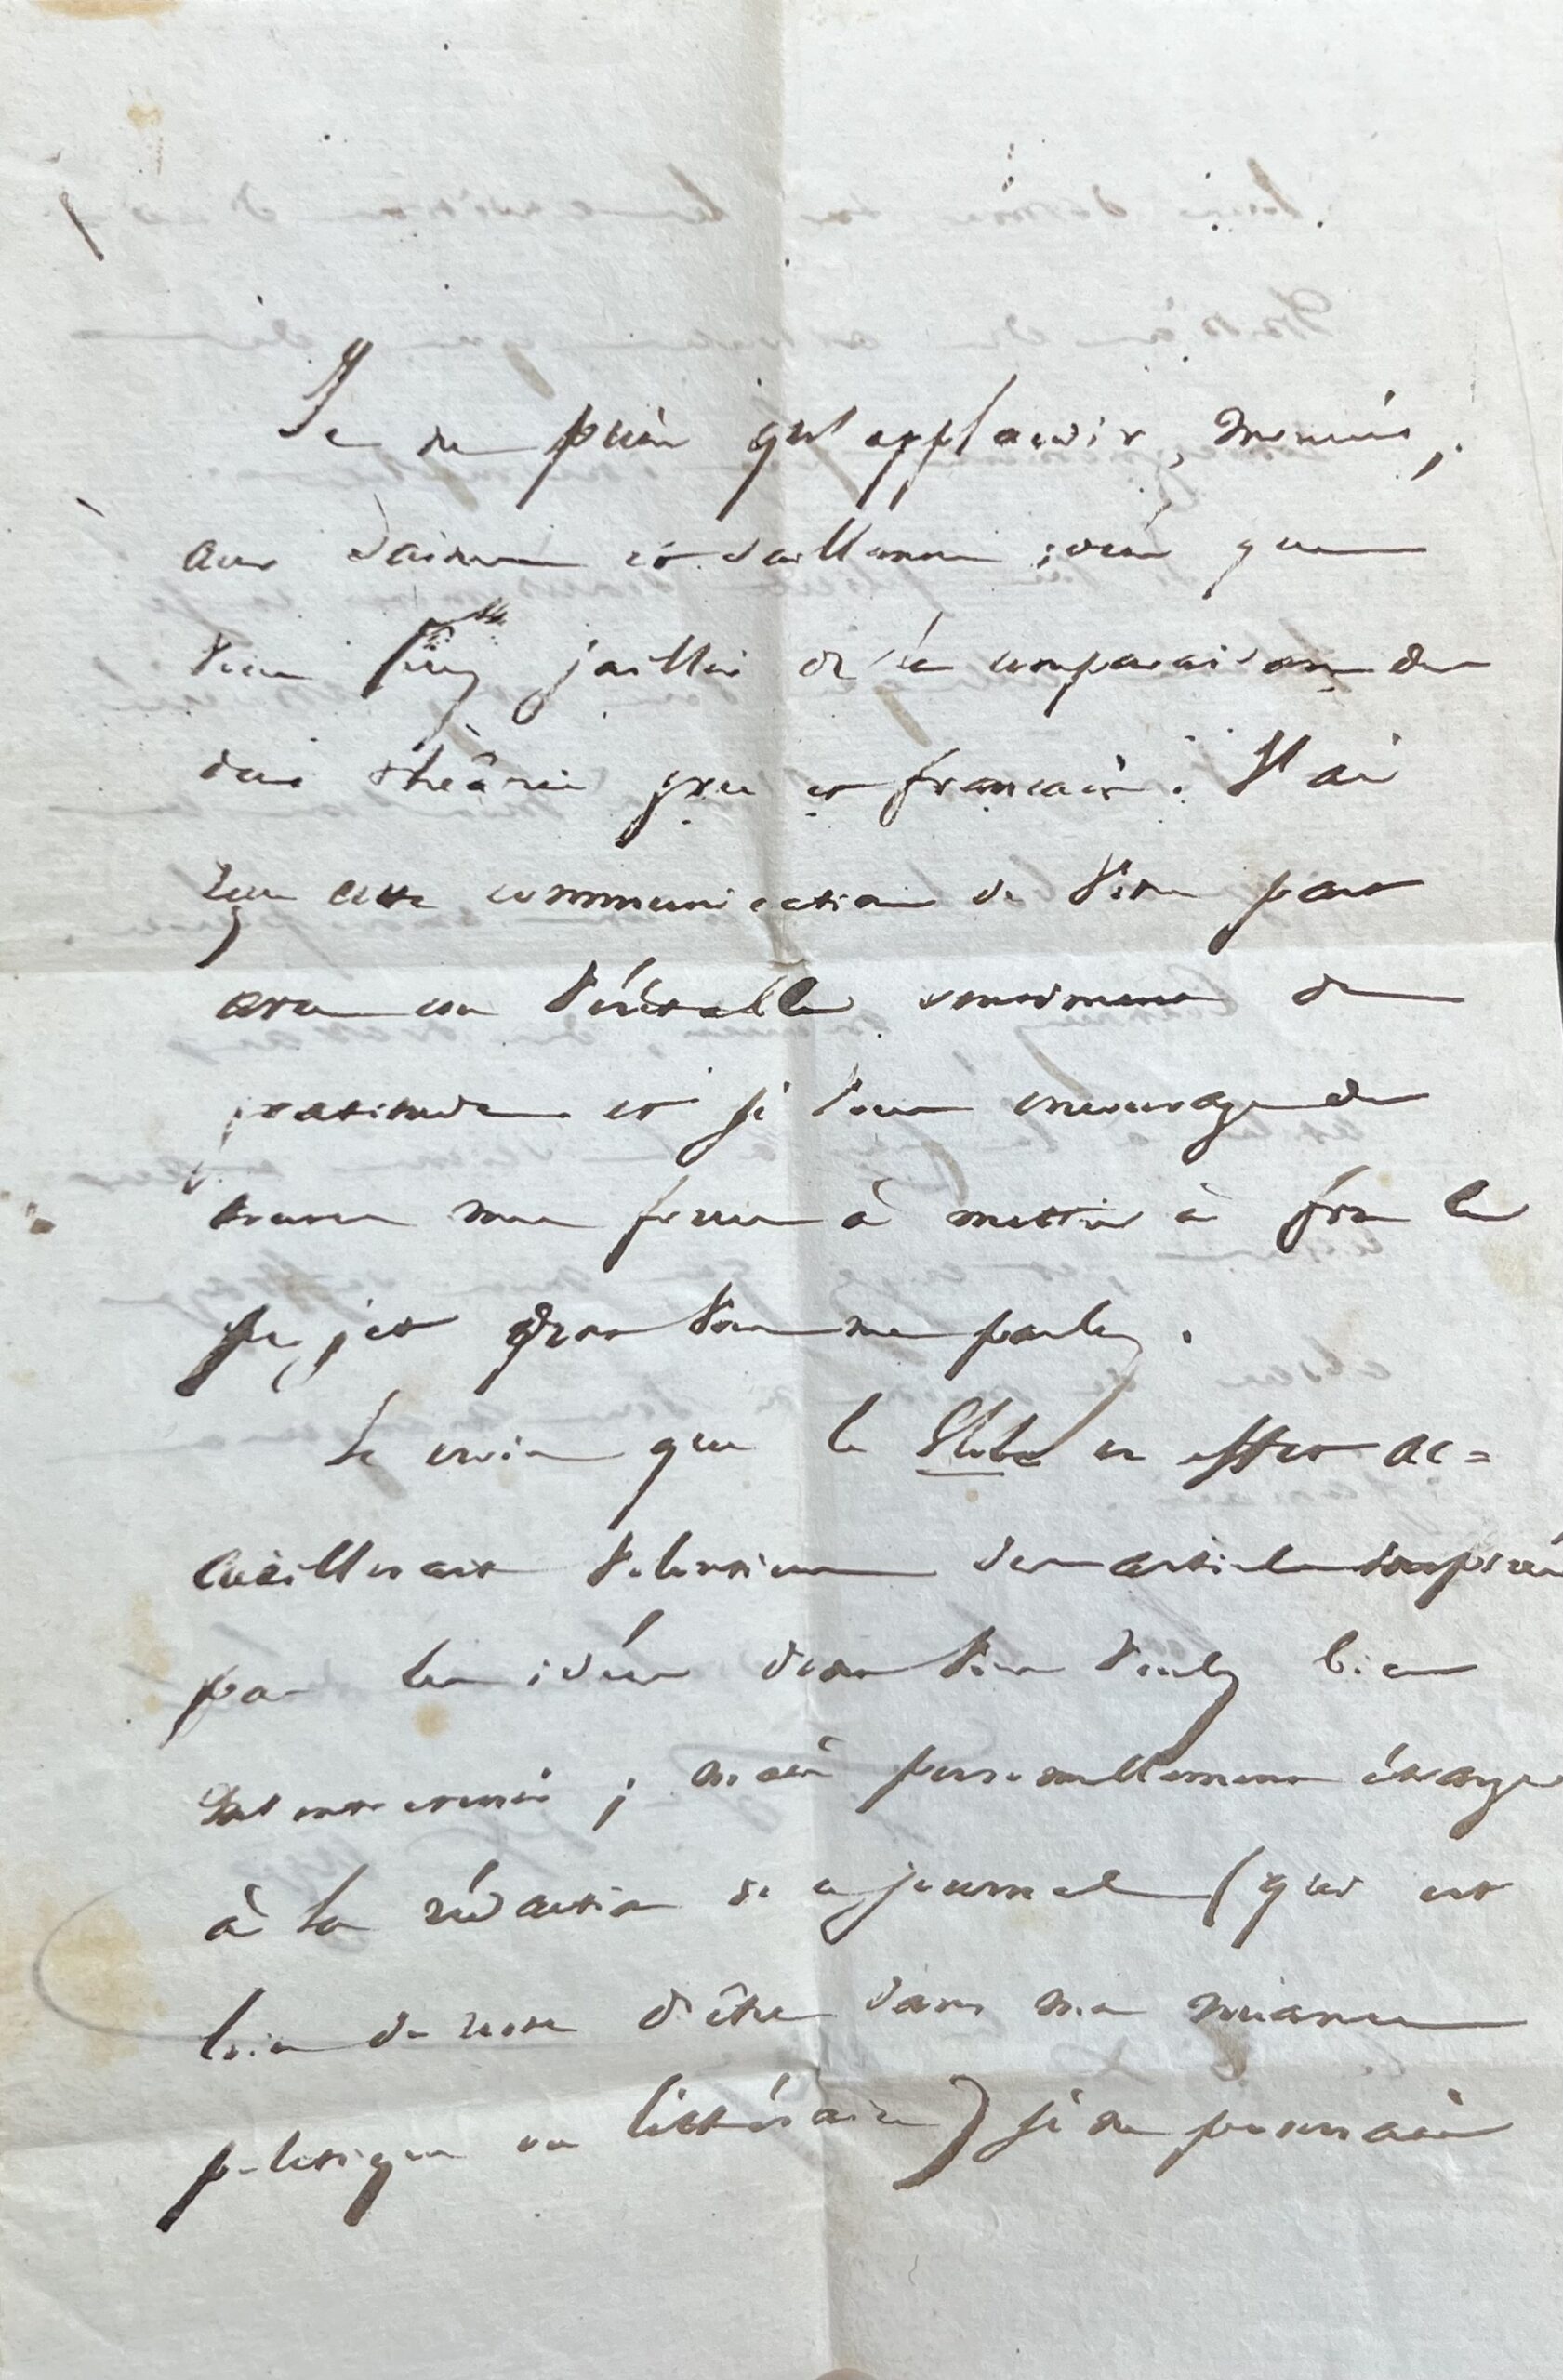 Je ne puis qu'applaudir, monsieur,
aux saines et vaillantes idées que
vous faites jaillir de la comparaison des
deux théâtres grec et français. J'ai
reçu cette communication de votre part
avec un véritable sentiment de
gratitude et je vous encourage de
toutes mes forces à mettre à fin le
projet dont vous me parlez.
Je crois que le Globe en effet ac=
cueillerait volontiers des articles inspirés
par les idées dont vous voulez bien
m'entretenir ; mais personnellement étranger
à la rédaction de ce journal (qui est
loin du reste d'être dans ma nuance
politique ou littéraire) je ne pourrais